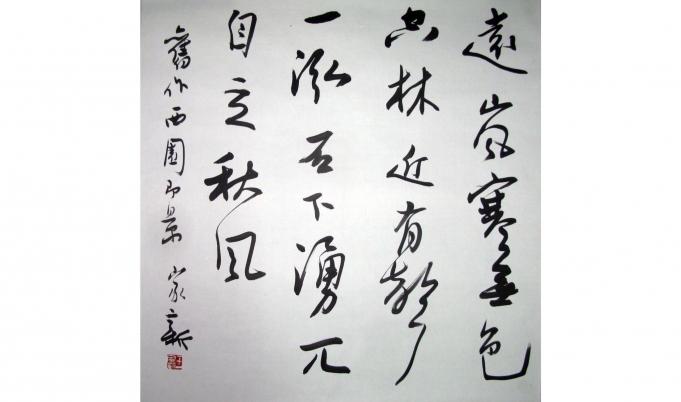 遠嵐寒無色
空林近有聲
一泓石下湧兀
自立秋風
舊作西園即景 家新